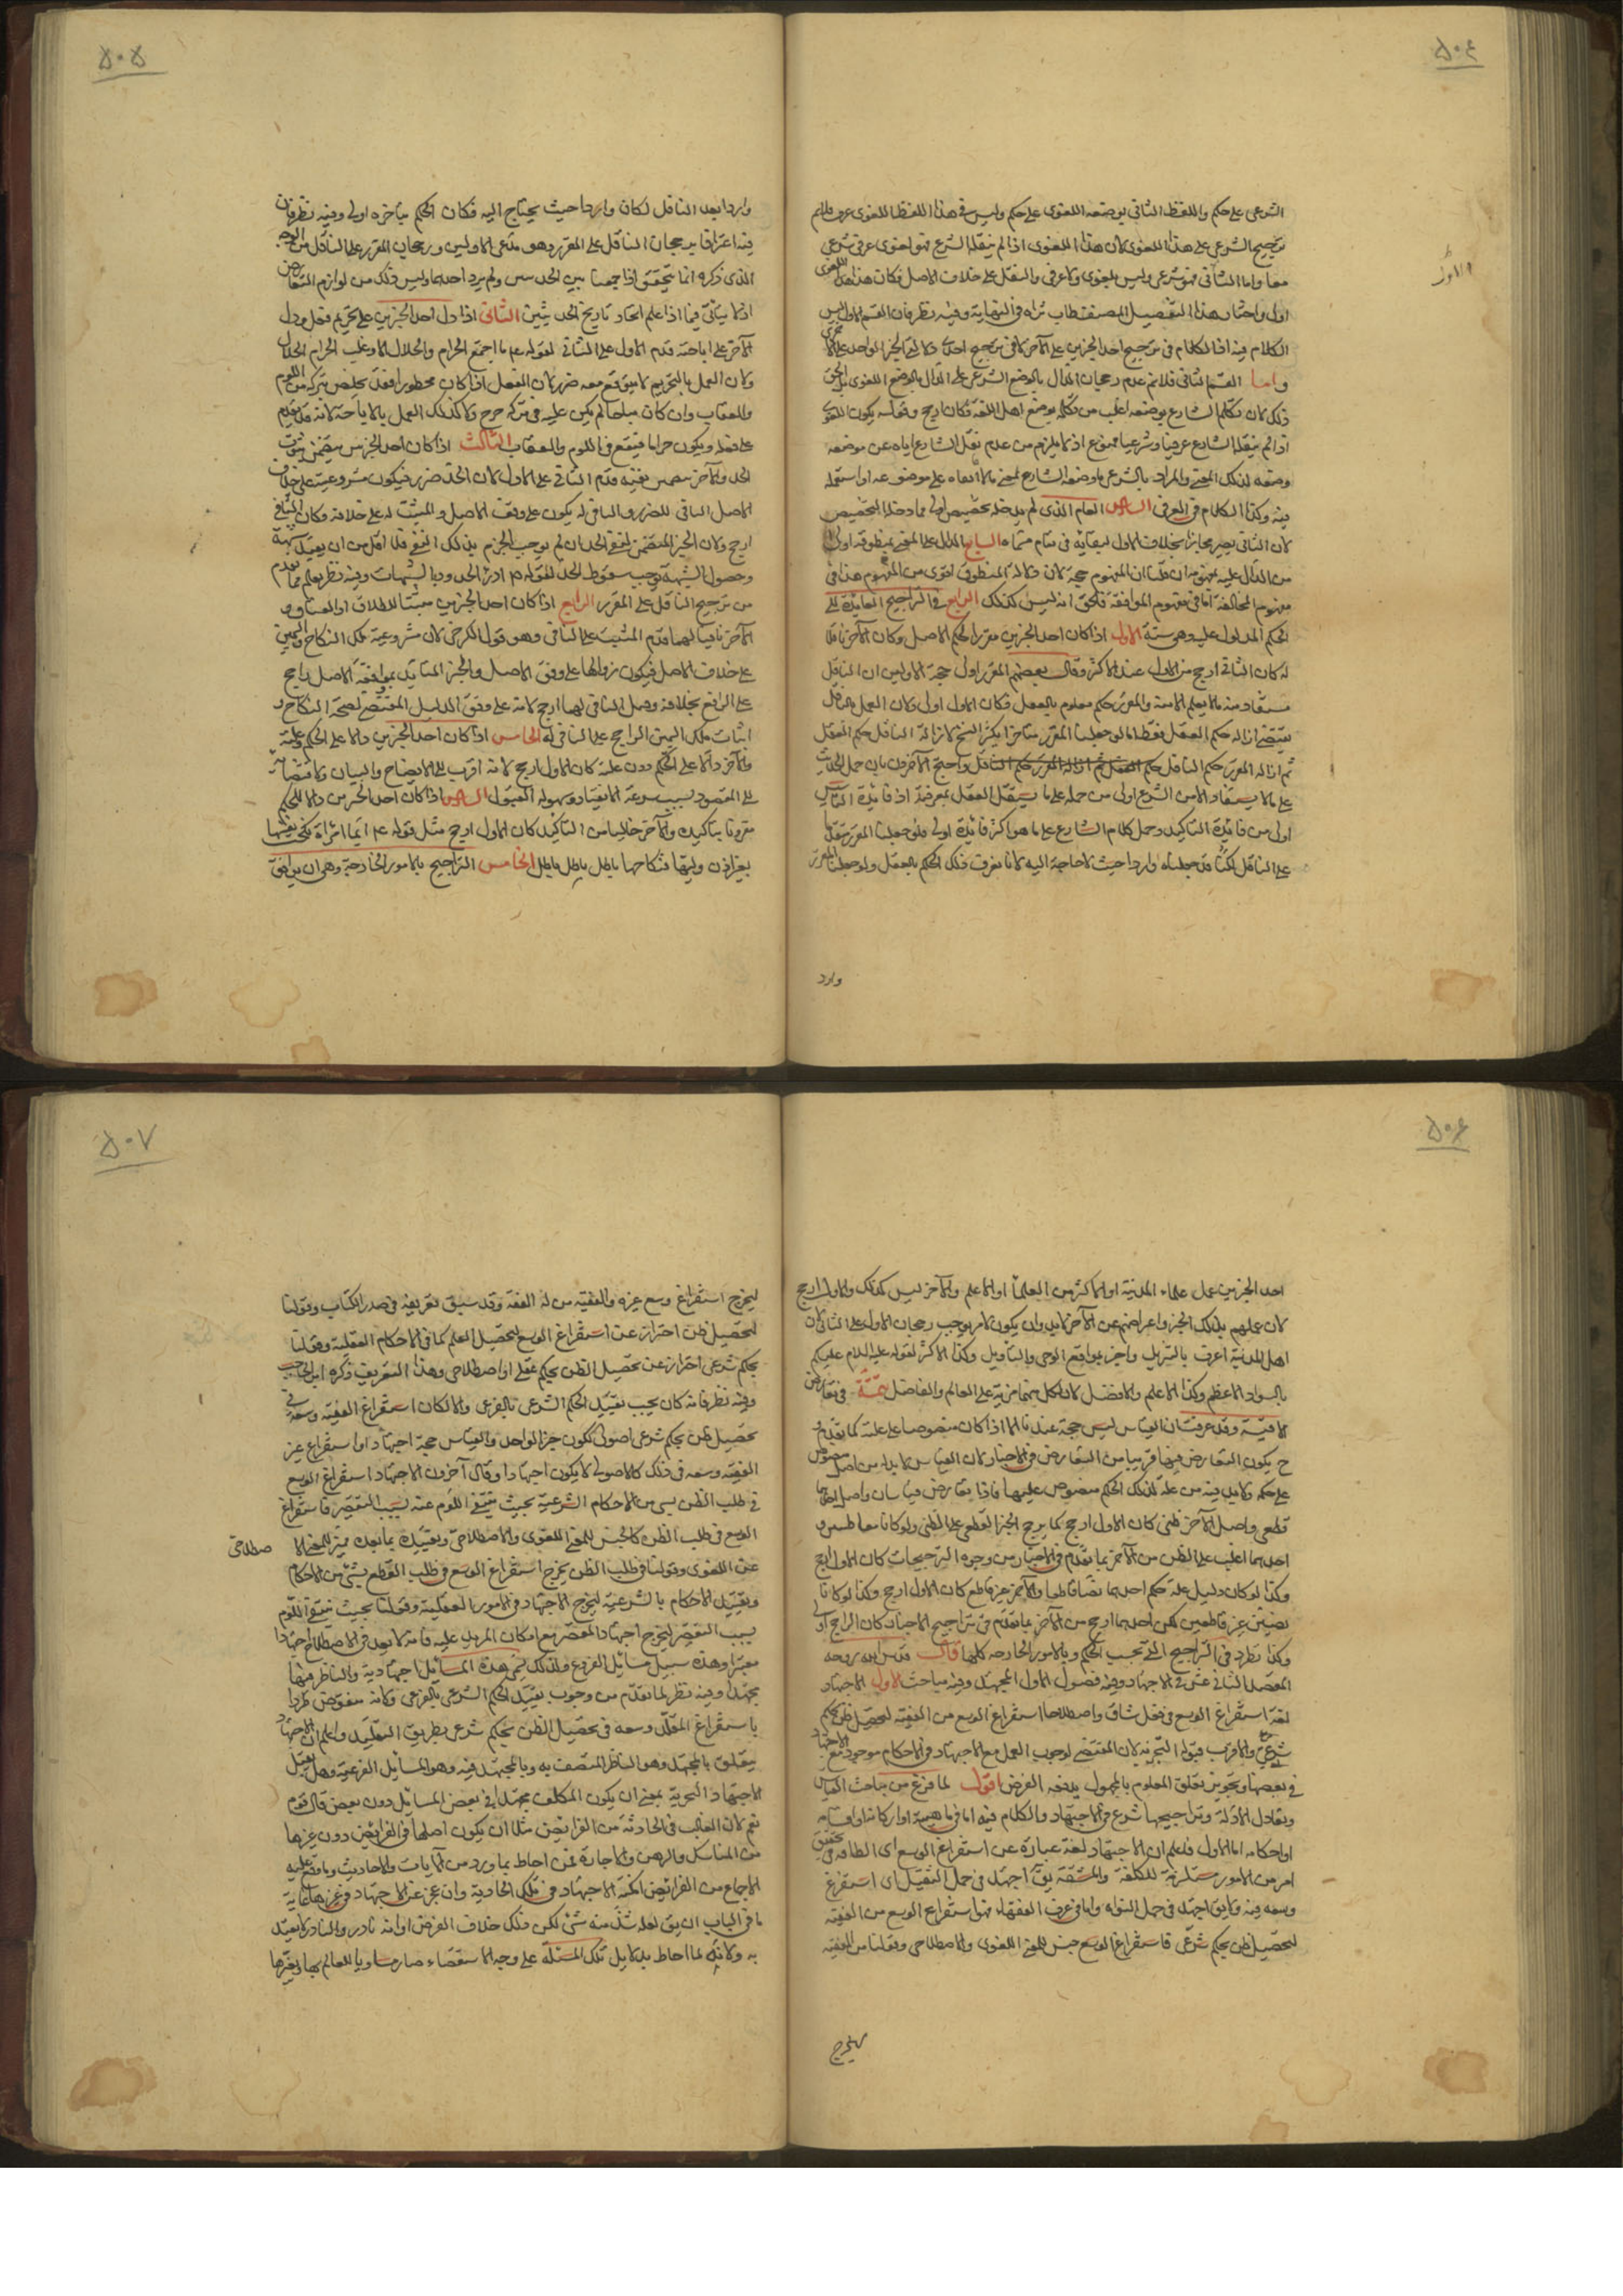 ٥٠٤
الشرعى على حكم واللفظ الثانى بوضعه اللغوى على حكم وليس فى هذا اللفظ اللغوى عرف
ترجيح الشرعى على هذا اللغوى لان هذا اللغوى اذا لم ينقله الشرع فهو لغوى عرفى شرعى
معا واما الثانى فهو شرعى وليس بلغوى ولا عرفى والنقل على خلاف الاصل فكان هذا اللغوى
اولى واختار هذا التفصيل المصنف طاب ثراه فى النهاية وفيه نظر فان القسم الاول ليس
الكلام فيه اذ الكلام فى ترجيح احد الخبرين على الآخر لا فى ترجيح احدى دلالتى الخبر الواحد على الاخرى
واما القسم الثانى فلا نم عدم رجحان الدال بالوضع الشرعى على الدال بالوضع اللغوى بل الحق
ذلك لان تكلم الشارع بوضعه اغلب من تكلمه بوضع اهل اللغة فكان ارجح وقوله يكون اللغوى
اذا لم ينقله الشارع عرفيا وشرعيا ممنوع اذ لا يلزم من عدم نقل الشارع اياه عن موضعه
وضعه لذلك المعنى والمراد بالشرعى ما وضعه الشارع لمعنى لا ما ابقاه على موضوعه او استعمله
فيه وكذا الكلام فى العرفى السادس العام الذى لم يدخله تخصيص اولى مما دخله التخصيص
لان الثانى يصير مجازا بخلاف الاول لبقائه فى تمام مسماه السابع الدال على المعنى بمنطوقه اولى
من الدال عليه بمفهومه ان قلنا ان المفهوم حجة لان دلالة المنطوق اقوى من المفهوم هذا فى
مفهوم المخالفة اما فى مفهوم الموافقة فالحق انه ليس كذلك الرابع فى التراجيح العائدة الى
الحكم المدلول عليه وهى ستة الاول اذا كان احد الخبرين مقررا لحكم الاصل وكان الآخر ناقلا
له كان الثانى ارجح من الاول عند الاكثر وقال بعضهم المقرر اولى حجة الاولين ان الناقل
يستفاد منه ما لا يعلم الا منه والمقرر حكم معلوم بالعقل فكان الاول اولى ولان العمل بالناقل
يقتضى ازالة حكم العقل فقط اما لو جعلنا المقرر متأخرا يكثر النسخ لازالة الناقل حكم العقل
ثم ازالة المقرر حكم الناقل واحتج الآخرون بان حمل الحديث
على ما لا يستفاد الا من الشرع اولى من حمله على ما يستقل العقل بمعرفته اذ فائدة التأسيس
اولى من فائدة التاكيد وحمل كلام الشارع على ما هو اكثر فائدة اولى فلو جعلنا المقرر متقدما
على الناقل لكنا قد جعلناه واردا حيث لا حاجة اليه لانا نعرف ذلك الحكم بالعقل ولو جعلنا المقرر
وارد
٥٠٥
واردا بعد الناقل لكان واردا حيث يحتاج اليه فكان الحكم بتاخره اولى وفيه نظر فان
فيه اعترافا برجحان الناقل على المقرر وهو مدعى الاولين ورجحان المقرر على الناقل من الوجه
الذى ذكره انما يتحقق اذا جمعنا بين الحديثين ولم يرد احدهما وليس ذلك من لوازم التعارض
اذ لا يتأتى فيما اذا علم اتحاد تاريخ الحديثين الثانى اذا دل احد الخبرين على تحريم فعل ودل
الآخر على اباحته قدم الاول على الثانى لقوله ع ما اجتمع الحرام والحلال الا وغلب الحرام الحلال
ولان العمل بالتحريم لا يتوقع معه ضرر لان الفعل اذا كان محظورا فقد تخلص بتركه من اللوم
والعقاب وان كان مباحا لم يكن عليه فى تركه حرج ولا كذلك العمل بالاباحة لانه قد يقدم
على فعله ويكون حراما فيقع فى اللوم والعقاب الثالث اذا كان احد الخبرين يتضمن ثبوت
الحد والآخر يتضمن نفيه قدم الثانى على الاول لان الحد ضرر فيكون مشروعيته على خلاف
الاصل النافى للضرر والنافى له يكون على وفق الاصل والمثبت له على خلافه وكان النافى
ارجح ولان الخبر المتضمن لنفى الحد ان لم يوجب الجزم بذلك النفى فلا اقل من ان يفيد شبهة
وحصول الشبهة توجب سقوط الحد لقوله ص ادرؤا الحدود بالشبهات وفيه نظر يعلم مما تقدم
من ترجيح الناقل على المقرر الرابع اذا كان احد الخبرين مثبتا للطلاق او العتاق و
الآخر نافيا لهما قدم المثبت على النافى وهو قول الكرخى لان مشروعية ملك النكاح واليمين
على خلاف الاصل فيكون زوالها على وفق الاصل والخبر المتايد بموافقة الاصل راجح
على الرافع بخلافه وقيل النافى لهما ارجح لانه على وفق الدليل المقتضى لصحة النكاح و
اثبات ملك اليمين الراجح على النافى له الخامس اذا كان احد الخبرين دالا على الحكم وعلته
والآخر دالا على الحكم دون علته كان الاول ارجح لانه اقرب الى الايضاح والبيان ولافضائه
الى المقصود بسبب سرعة الانقياد وسهولة القبول السادس اذا كان احد الخبرين دالا للحكم
مقرونا بتاكيده والآخر خاليا من التاكيد كان الاول ارجح مثل قوله ع ايما امرأة نكحت نفسها
بغير اذن وليها فنكاحها باطل باطل باطل الخامس التراجيح بالامور الخارجة وهى ان يوافق
٥٠٦
احد الخبرين عمل علماء المدينة او الاكثر من العلماء او الاعلم والآخر ليس كذلك والاول ارجح
لان عملهم بذلك الخبر واعراضهم عن الآخر لا بد وان يكون لامر يوجب رجحان الاول على الثانى لان
اهل المدينة اعرف بالتنزيل واخبر بمواقع الوحى والتأويل وكذا الاكثر لقوله عليه السلام عليكم
بالسواد الاعظم وكذا الاعلم والافضل لان لكل منهما مزية على العالم والفاضل تتمة فى تعارض
الاقيسة وقد عرفت ان القياس ليس حجة عندنا الا اذا كان منصوصا على علته كما تقدم و
ح يكون التعارض فيها قريبا من التعارض فى الاخبار لان القياس لا بد له من اصل منصوص
على حكمه ولا بد فيه من علة لذلك الحكم منصوص عليها فاذا تعارض قياسان واصل احدهما
قطعى واصل الآخر ظنى كان الاول ارجح كما يرجح الخبر القطعى على الظنى ولو كانا معا ظنيين و
احدهما اغلب على الظن من الآخر بما تقدم فى الاخبار من وجوه الترجيحات كان الاول ارجح
وكذا لو كان دليل علة حكم احدهما نصا قاطعا والآخر غير قاطع كان الاول ارجح وكذا لو كانا
نصين غير قاطعين لكن احدهما ارجح من الآخر بما تقدم فى تراجيح الاخبار كان الراجح اولى
وكذا نظرد فى التراجيح التى بحسب الحكم وبالامور الخارجة كلها قال قدس الله روحه
الفصل الثانى عشر فى الاجتهاد وفيه فصول الاول المجتهد وفيه مباحث الاول الاجتهاد
لغة استفراغ الوسع فى فعل شاق واصطلاحا استفراغ الوسع من الفقيه لتحصيل ظن بحكم
شرعى والاقرب قبوله التجزئة لان المقتضى لوجوب العمل مع الاجتهاد فى الاحكام موجود مع الاجتهاد
فى بعضها وتجويز تعلق المعلوم بالمجهول يدفعه الفرض اقول لما فرغ من مباحث القياس
وتعادل الادلة وتراجيحها شرع فى الاجتهاد والكلام فيه اما فى ماهيته او اركانه او اقسامه
او احكامه اما الاول فاعلم ان الاجتهاد لغة عبارة عن استفراغ الوسع اى الطاقة فى تحقيق
امر من الامور مستلزمة للكلفة والمشقة يق اجتهد فى حمل الثقيل اى استفرغ
وسعه فيه ولا يق اجتهد فى حمل النواة واما فى عرف الفقهاء فهو استفراغ الوسع من الفقيه
لتحصيل ظن بحكم شرعى فاستفراغ الوسع جنس للمعنى اللغوى والاصطلاحى وقولنا من الفقيه
ليخرج
٥٠٧
ليخرج استفراغ وسع غيره والفقيه من له الفقه وقد سبق تعريفه فى صدر الكتاب وقولنا
لتحصيل ظن احتراز عن استفراغ الوسع لتحصيل العلم كما فى الاحكام العقلية وقولنا
بحكم شرعى احتراز عن تحصيل الظن بحكم عقلى او اصطلاحى وهذا التعريف ذكره ابن الحاجب
وفيه نظر فانه كان يجب تقييد الحكم الشرعى بالفرعى والا لكان استفراغ الفقيه وسعه فى
تحصيل ظن بحكم شرعى اصولى ككون خبر الواحد والقياس حجة اجتهادا واستفراغ غير
الفقيه وسعه فى ذلك كالاصولى لا يكون اجتهادا وقال آخرون الاجتهاد استفراغ الوسع
فى طلب الظن بشىء من الاحكام الشرعية بحيث ينتفى اللوم عنه بسبب التقصير فاستفراغ
الوسع فى طلب الظن كالجنس للمعنى اللغوى والاصطلاحى وتقييده بما بعده تميز للمعنى الا صطلاحى
عن اللغوى وقولنا فى طلب الظن يخرج استفراغ الوسع فى طلب القطع بشىء من الاحكام
وتقييد الاحكام بالشرعية ليخرج الاجتهاد فى الامور العقلية وقولنا بحيث ينتفى اللوم
بسبب التقصير ليخرج اجتهاد المقصر مع امكان المزيد عليه فانه لا يعد فى الاصطلاح اجتهادا
معتبرا وهذه سبيل مسائل الفروع ولذلك تسمى هذه المسائل اجتهادية والناظر فيها
مجتهدا وفيه نظر لما تقدم من وجوب تقييد الحكم الشرعى بالفرعى ولانه منقوض طردا
باستفراغ المقلد وسعه فى تحصيل الظن بحكم شرعى بطريق التقليد واعلم ان الاجتهاد
يتعلق بالمجتهد وهو الناظر المتصف به وبالمجتهد فيه وهو المسائل الفرعية وهل يقبل
الاجتهاد التجزية بمعنى ان يكون المكلف مجتهدا فى بعض المسائل دون بعض قال قوم
نعم لان الغالب فى الحادثة من الفرائض مثلا ان يكون اصلها فى الفرائض دون غيرها
من المناسك والرهن والاجارة فمن احاط بما ورد من الآيات والاحاديث وما وقع عليه
الاجماع من الفرائض امكنه الاجتهاد فى تلك الحادثة وان عجز عن الاجتهاد فى غيرها غاية
ما فى الباب ان يق لعله شذ منه شىء لكن ذلك خلاف الفرض او انه نادر والنادر لا يعتد
به ولانه لما احاط بدلائل تلك المسئلة على وجه الاستقصاء صار مساويا للعالم بها وبغيرها